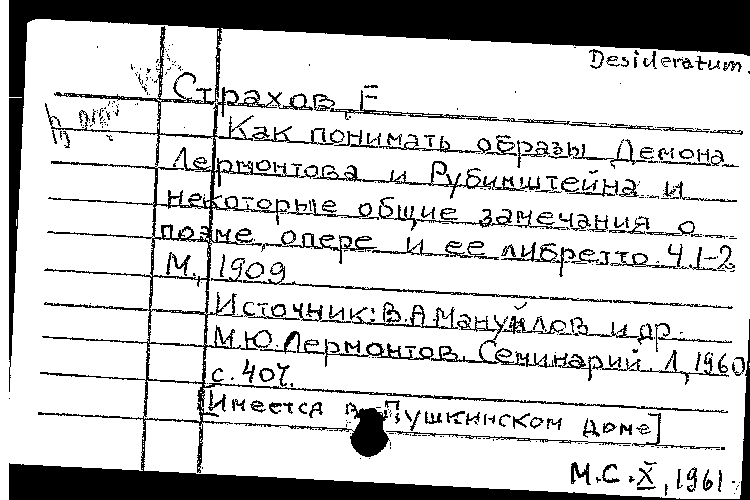 Desideratum.
Страхов, Е
Как понимать образы Демона
Лермонтова и Рубинштейна и
некоторые общие замечания о
поэме, опере и ее либретто. Ч.1-2
М., 1909.
Источник: В.А Мануйлов и др.
М.Ю. Лермонтов. Семинарий. Л, 1960
с. 407.
[Имеется в Пушкинском доме]
М.С. X, 1961.